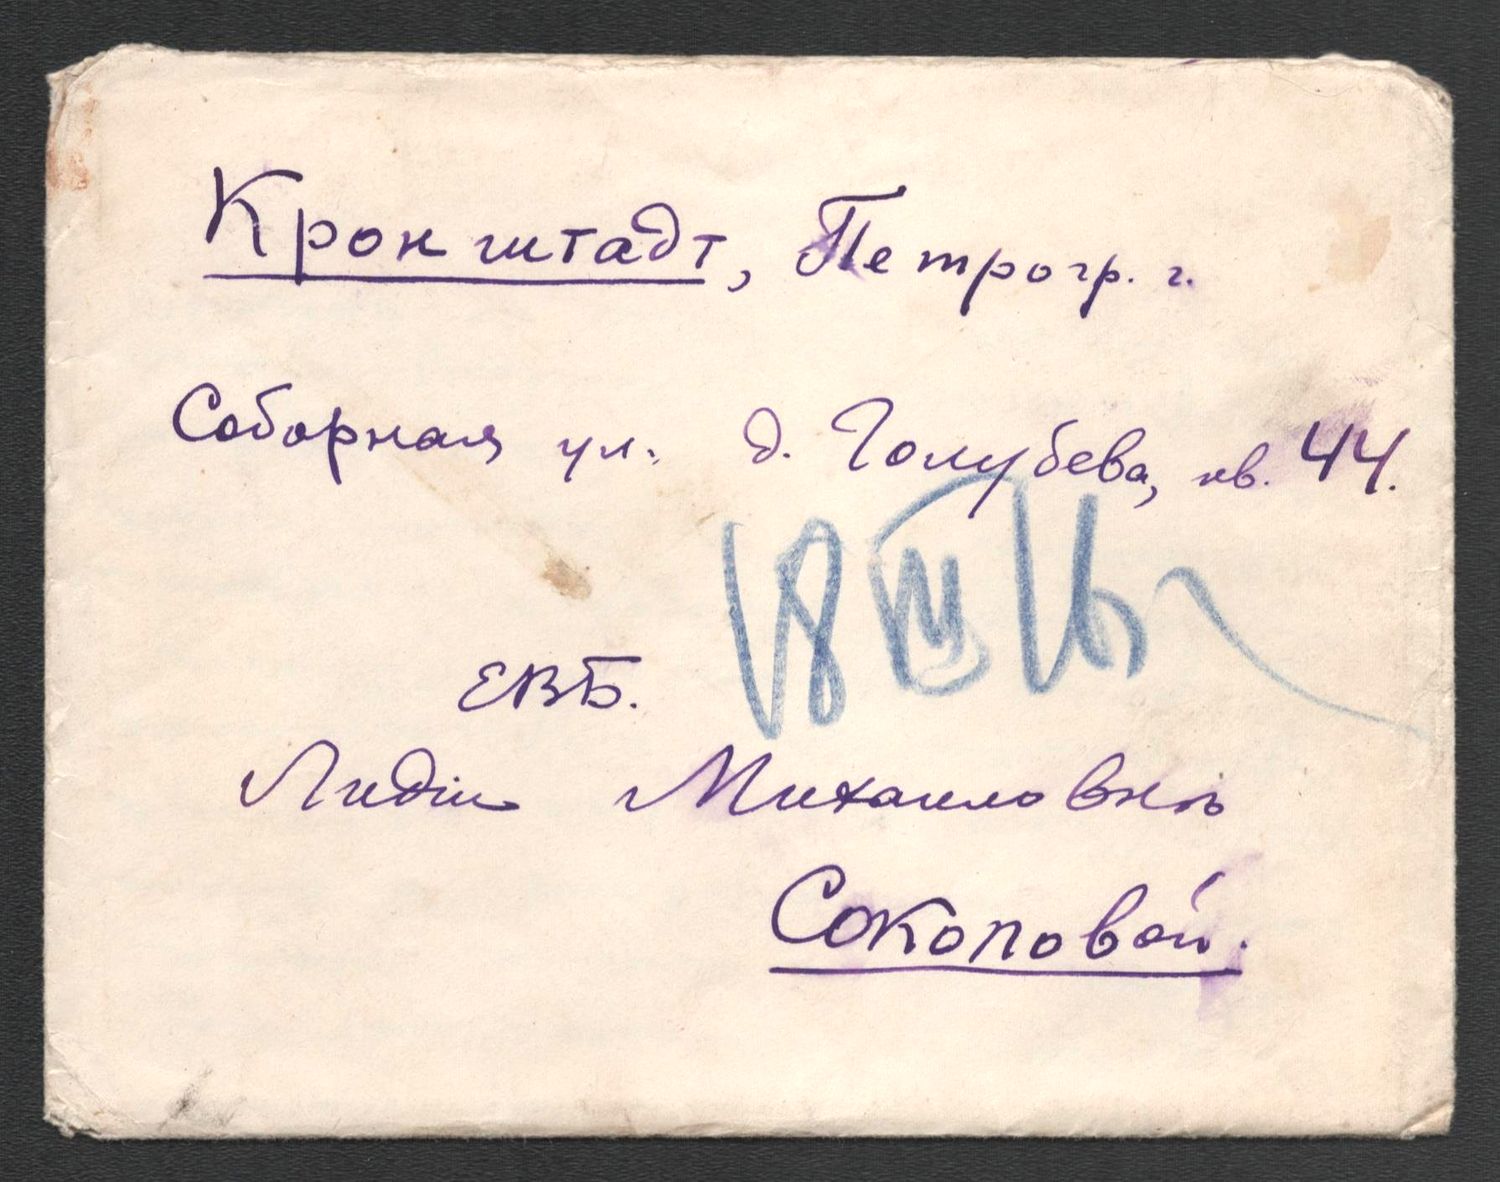 Кронштадт, Петрогр. г.
Соборная ул. д. Голубева, кв. 44.
18 III 16
ЕВБ.
Лидіи Михаиловнѣ
Соколовой.